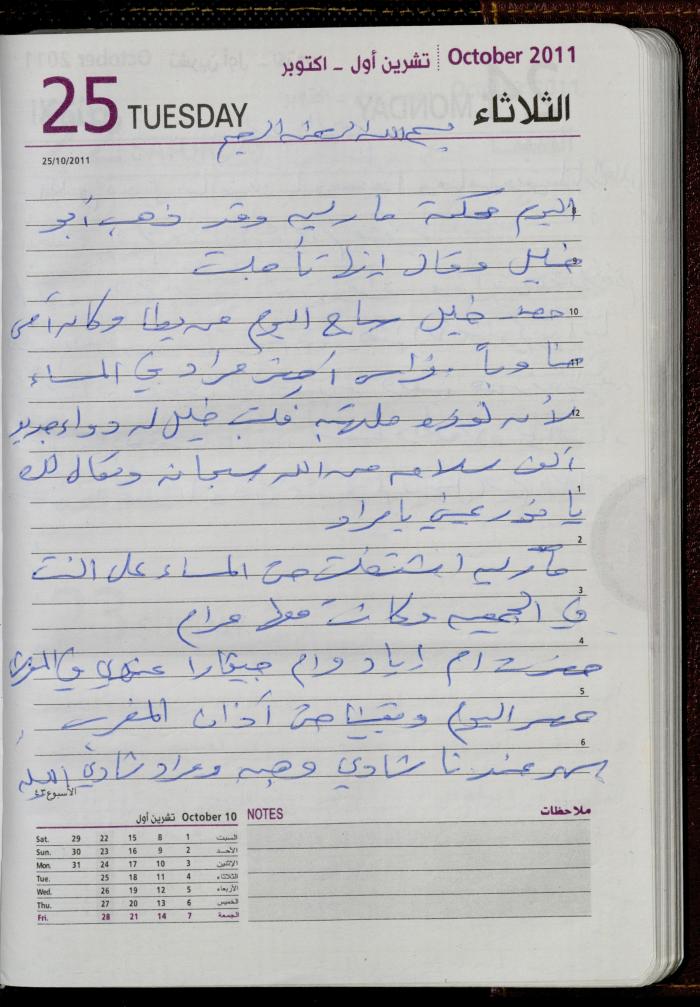 October 2011 تشرين أول - اكتوبر
25 TUESDAY الثلاثاء
بسم الله الرحمن الرحيم
25/10/2011
اليوم محكمة ماريه وقد ذهب أبو
خليل وقال إنها تأجلت
حضر خليل سماح اليوم من يطا وكانه أمس
مناوباً. مراد في المساء
لأنه ملتهبه فكتب خليل له دواء جديد
ألف سلامه من الله سبحانه وتعالى لك
يا نور عيني يا مراد
ماريه اشتغلت حتى المساء على النت
في الجمعيه وكانت معها مرام
حضرت ام زياد وام جيفارا عندي في
عصر اليوم وبقينا حتى أذان المغرب
سهر عندنا شادي وهبه ومراد شادي
9
10
11
12
1
2
3
4
5
6
الأسبوع ٤٣
October 10 تشرين أول
Sat. 29 22 15 8 1 السبت
Sun. 30 23 16 9 2 الأحد
Mon. 31 24 17 10 3 الاثنين
Tue. 25 18 11 4 الثلاثاء
Wed. 26 19 12 5 الأربعاء
Thu. 27 20 13 6 الخميس
Fri. 28 21 14 7 الجمعة
NOTES ملاحظات